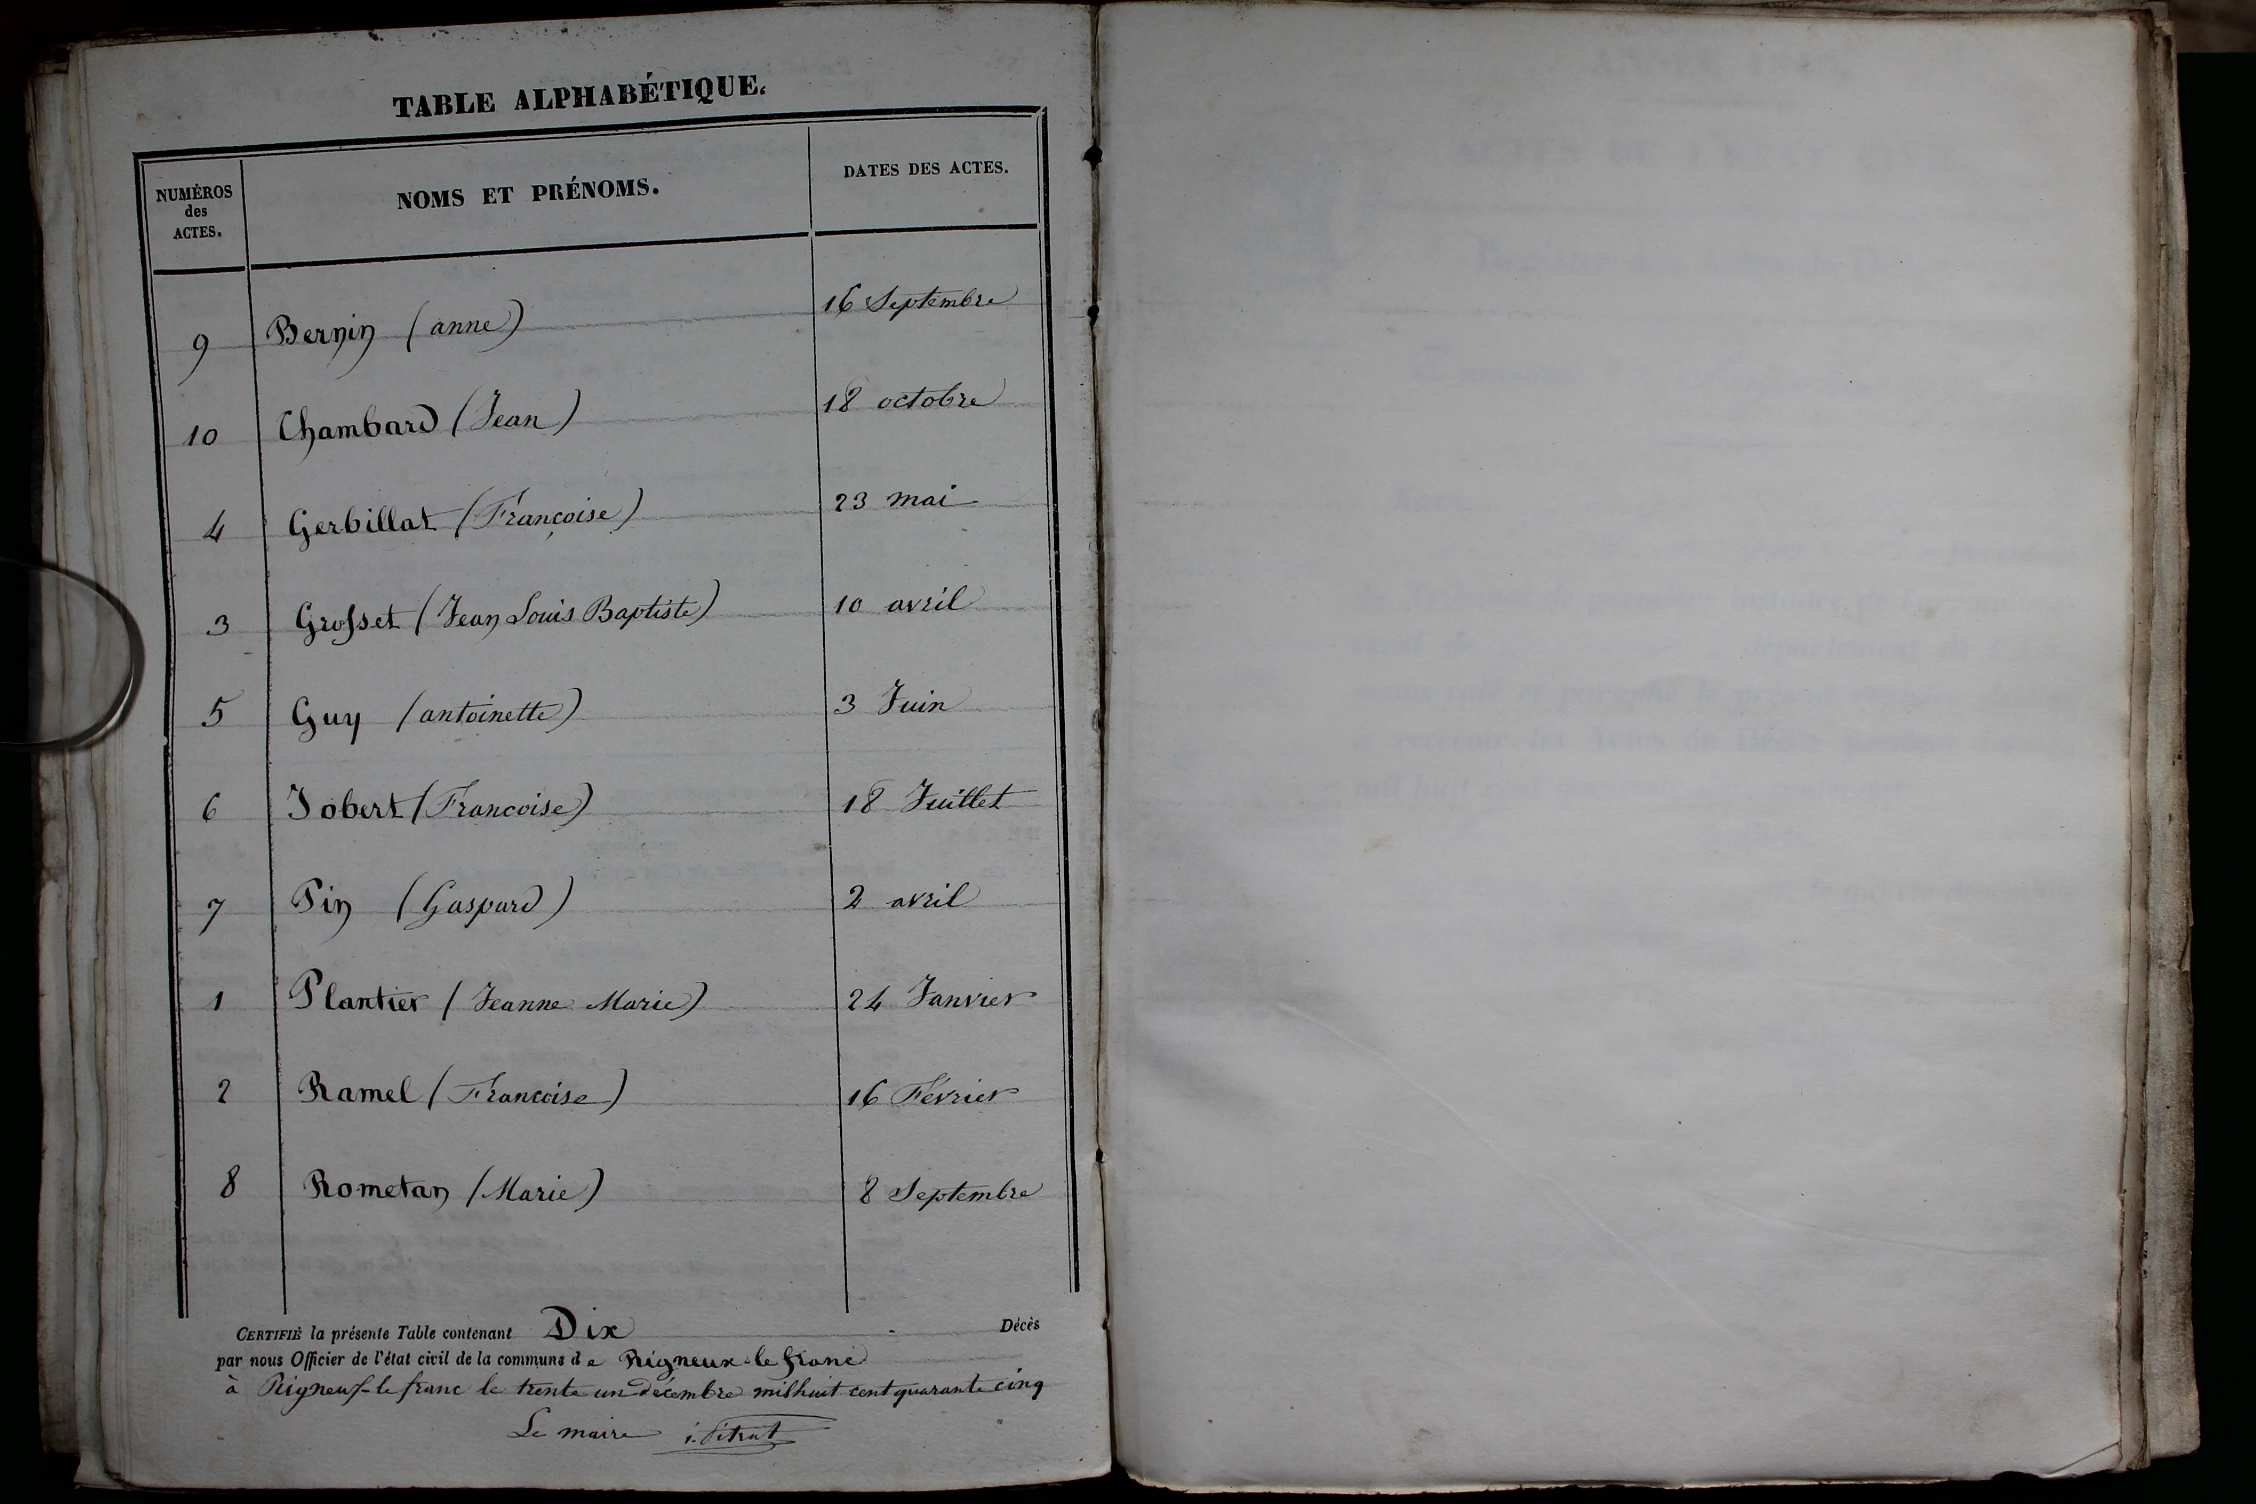 TABLE ALPHABÉTIQUE.
NUMÉROS des ACTES. NOMS ET PRÉNOMS. DATES DES ACTES.
9 Bernin (anne) 16 Septembre
10 Chambard (Jean) 18 octobre
4 Gerbillat (Françoise) 23 mai
3 Grosset (Jean Louis Baptiste) 10 avril
5 Guy (antoinette) 3 Juin
6 Jobert (Francoise) 18 Juillet
7 Pin (Gaspard) 2 avril
1 Plantier (Jeanne Marie) 24 Janvier
2 Ramel (Francoise) 16 Février
8 Rometan (Marie) 8 Septembre
CERTIFIÉ la présente Table contenant Dix Décès
par nous Officier de l'état civil de la commune de Rigneux-le franc
à Rigneux-le franc le trente un décembre mil huit cent quarante cinq
Le maire